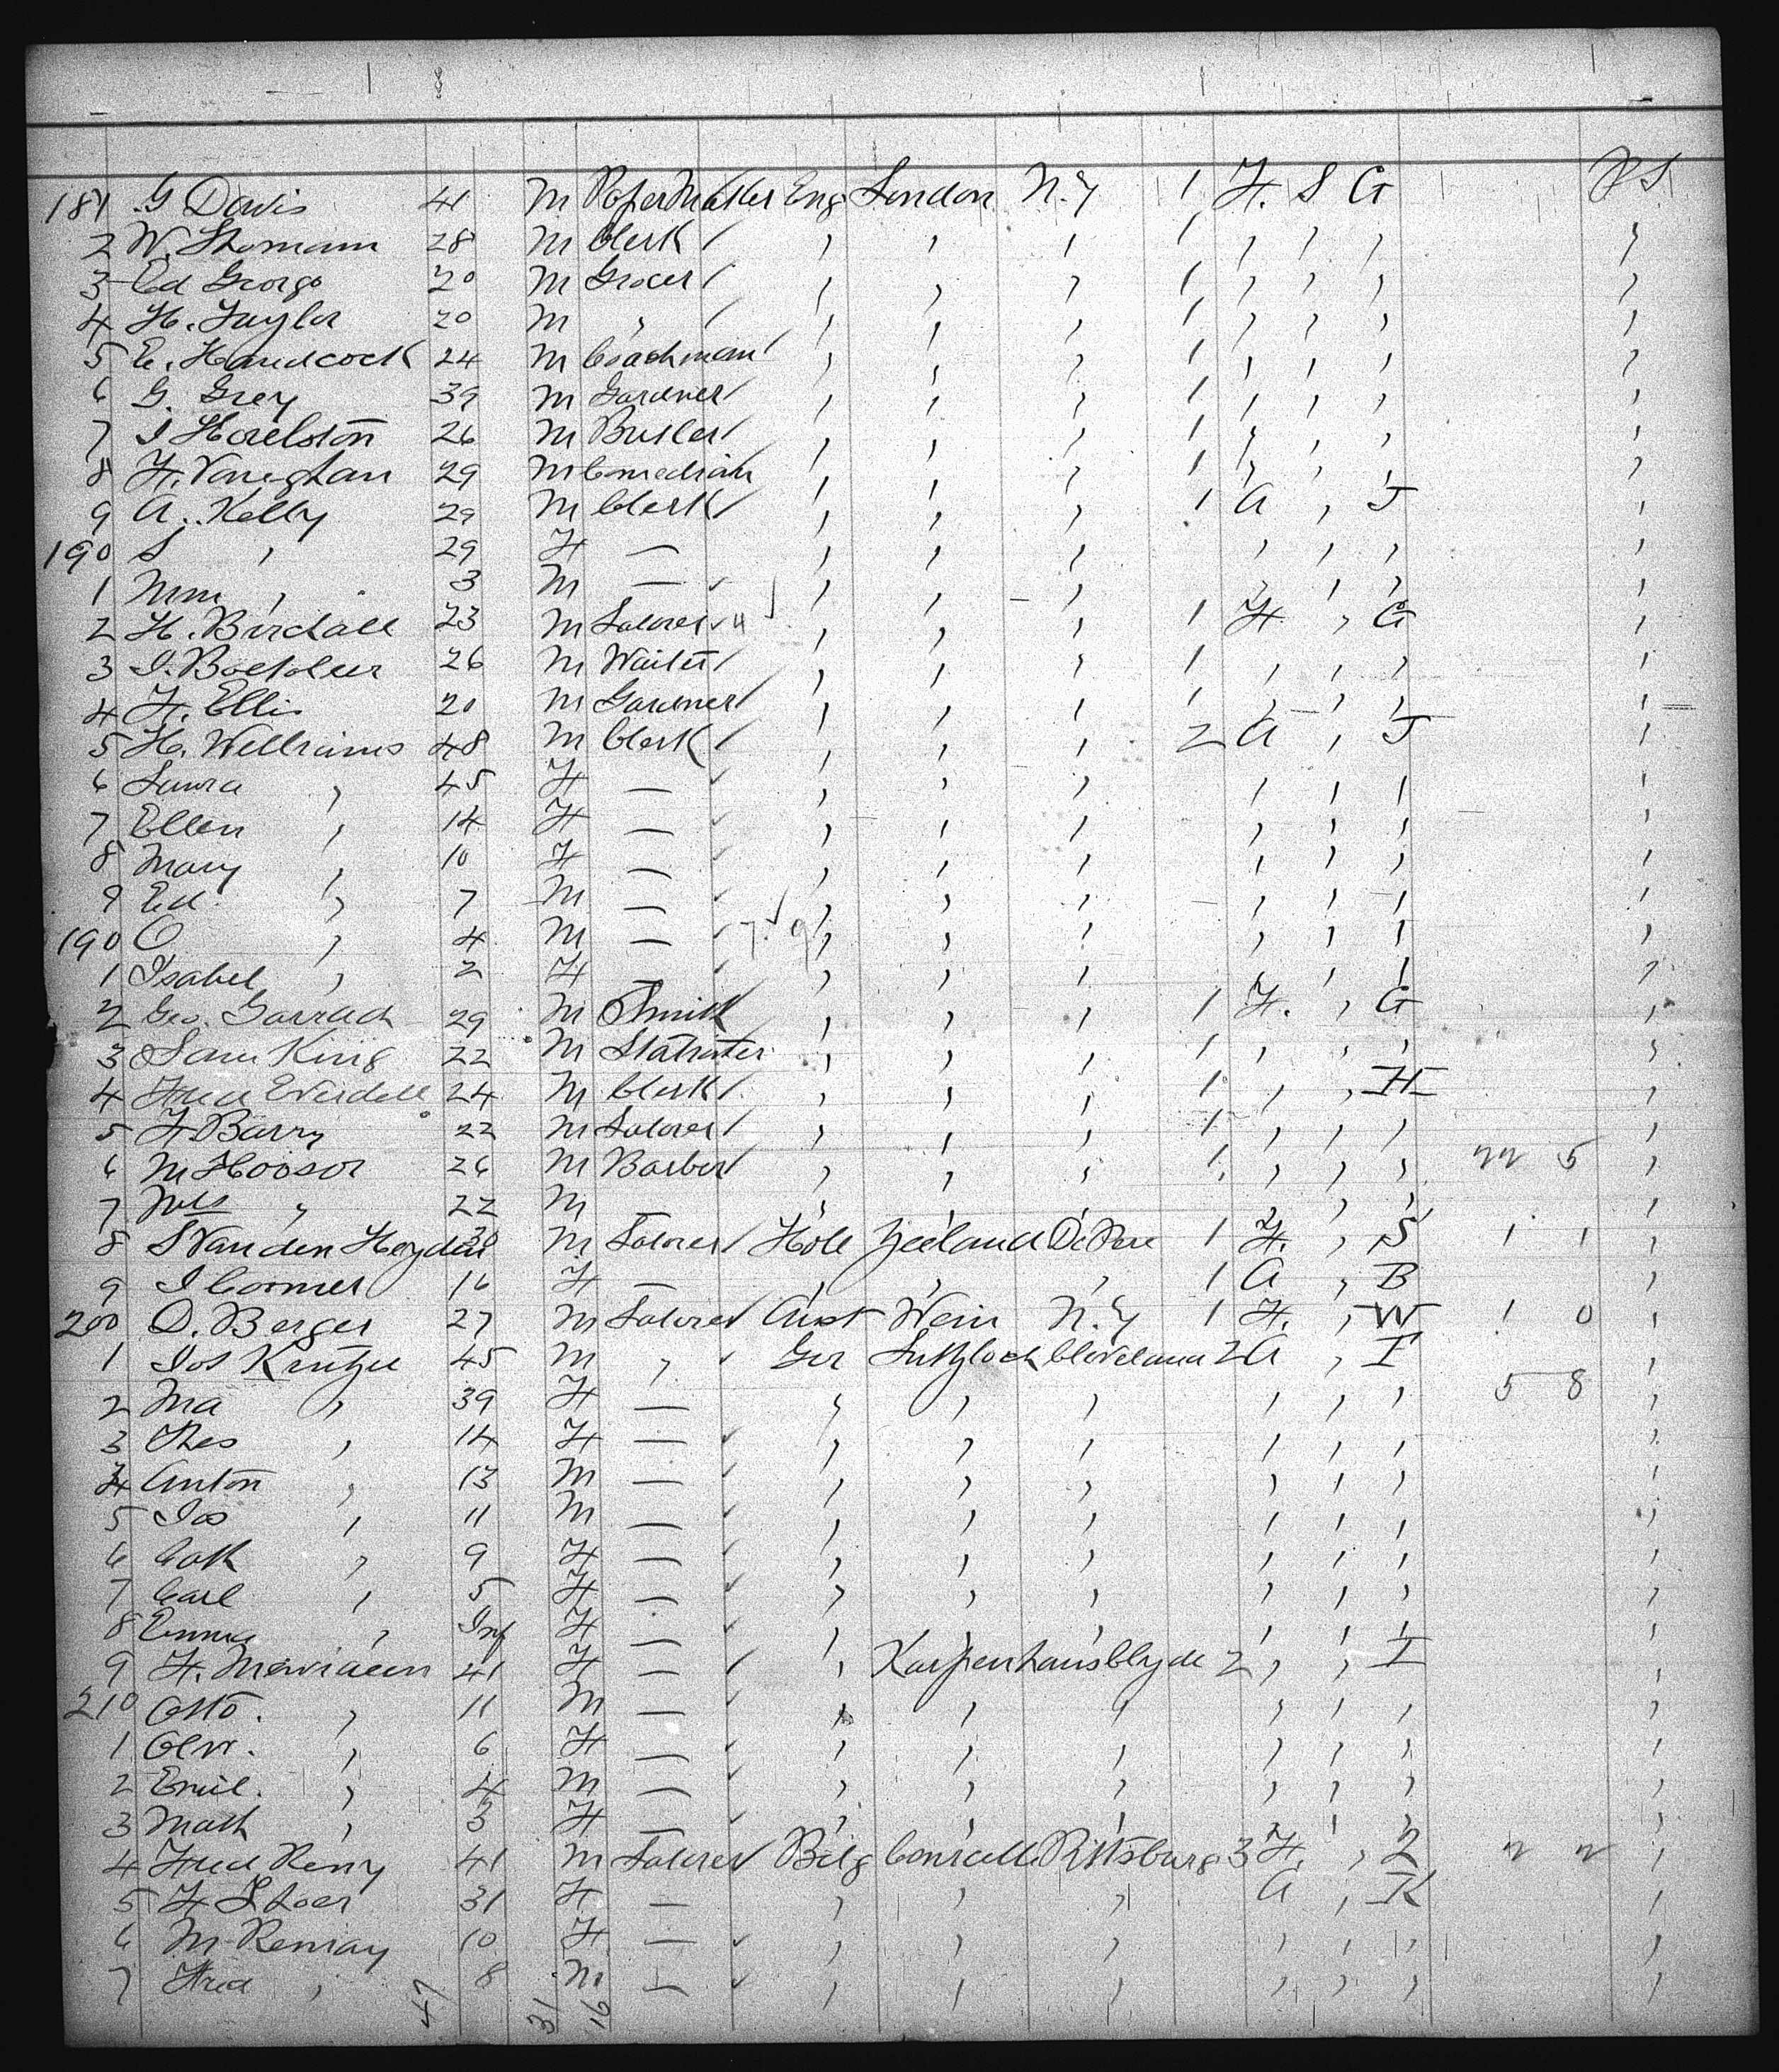 181 G Davis 41 M Paper Maker Eng London N.Y 1 F. S G P S
2 W. Thomann 28 M Clerk / , , , 1 , , , ,
3 Ed George 20 M Grocer / , , , 1 , , , ,
4 H. Taylor 20 M , / , , , 1 , , , ,
5 E. Handcock 24 M Coachman / , , , 1 , , , ,
6 G. Grey 39 M Gardner / , , , 1 , , , ,
7 I 26 M Butler / , , , 1 , , , ,
8 F. Vaughan 29 M Comedian , , , 1 , , , ,
9 A. Kelly 29 M Clerk / , , , 1 A , J ,
190 S , 29 F — , , , , , , ,
1 Wm , 3 M — , , , , , , ,
2 H. Birchall 23 M Laborer 4 , , , 1 F , G ,
3 I. 26 M Waiter / , , , 1 , , , ,
4 F. Ellis 20 M Gardner / , , , 1 , , , ,
5 H. Williams 48 M Clerk / , , , 2 A , J ,
6 Laura , 45 F — , , , , , , ,
7 Ellen , 14 F — , , , , , , ,
8 Mary , 10 F — , , , , , , ,
9 Ed. , 7 M — , , , , , , ,
190 O , 4 M — 7. 9 , , , , , , ,
1 Isabel , 2 F — , , , , , , ,
2 Geo. Garrach 29 M Smith / , , , 1 F. , G ,
3 Sam King 22 M , , , 1 , , , ,
4 Fred 24 M Clerk / , , , 1 , , H ,
5 F Barry 22 M Laborer / , , , 1 , , , ,
6 M 26 M Barber / , , , 1 , , , 22 5 ,
7 Mrs , 22 M — , , , , , , ,
8 S Vanden Heyden 30 M Laborer / Holl Zeeland De Pere 1 F. , S 1 1 ,
9 I Cormer 16 F — , , , 1 A , B ,
200 D. Berger 27 M Laborer Aust Wein N.Y 1 F. , W 1 0 ,
1 Jos 45 M , Ger Cleveland 2 A , I ,
2 Ma , 39 F — , , , , , , 5 8 ,
3 Thes , 14 F — , , , , , , ,
4 Anton , 13 M — , , , , , , ,
5 Jos , 11 M — , , , , , , ,
6 Cath , 9 F — , , , , , , ,
7 Carl , 5 F — , , , , , , ,
8 Emma , Inf F — , , , , , , ,
9 F. 41 F — / , Karpenhaus Clyde 2 , , I ,
210 Otto. , 11 M — , , , , , , ,
1 , 6 F — , , , , , , ,
2 Emil. , 4 M — , , , , , , ,
3 Math , 3 F — , , , , , , ,
4 Fred Remy 41 M Laborer Belg Courcelle Pittsburg 3 F. , 2 2 2 ,
5 F 31 F — , , , A , K ,
6 M Remay 10 F — , , , , , , ,
7 Fred , 8 M — , , , , , , ,
47 31 16